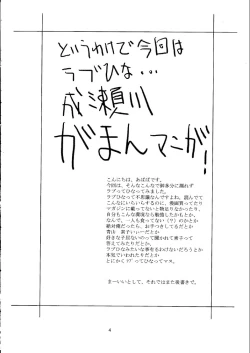 というわけで今回は
ラブひな…
成瀬川
がまんマンガ!
こんにちは、あばばです。
今回は、そんなこんなで御多分に漏れず
ラブってひなってみました。
ラブひなって不思議なんですよね。読んでて
こんなにいらいらするのに、番組買ってたり
マガジンに載ってないと物足りなかったり、
自分もこんな環境なら勉強したかもとか、
なんで、一人も食ってない(？)のかとか
絶対俺だったら、お手つきしてるだとか
青山 素子いぃーだとか
好きな子居ないのって聞かれて素子って
答えてみたりだとか、
ラブひなみたいな事をるわけないだろうとか
本気でいわれたりだとか
とにかくラブってひなってマス。
まーいいとして、それではまた後書きで。
4